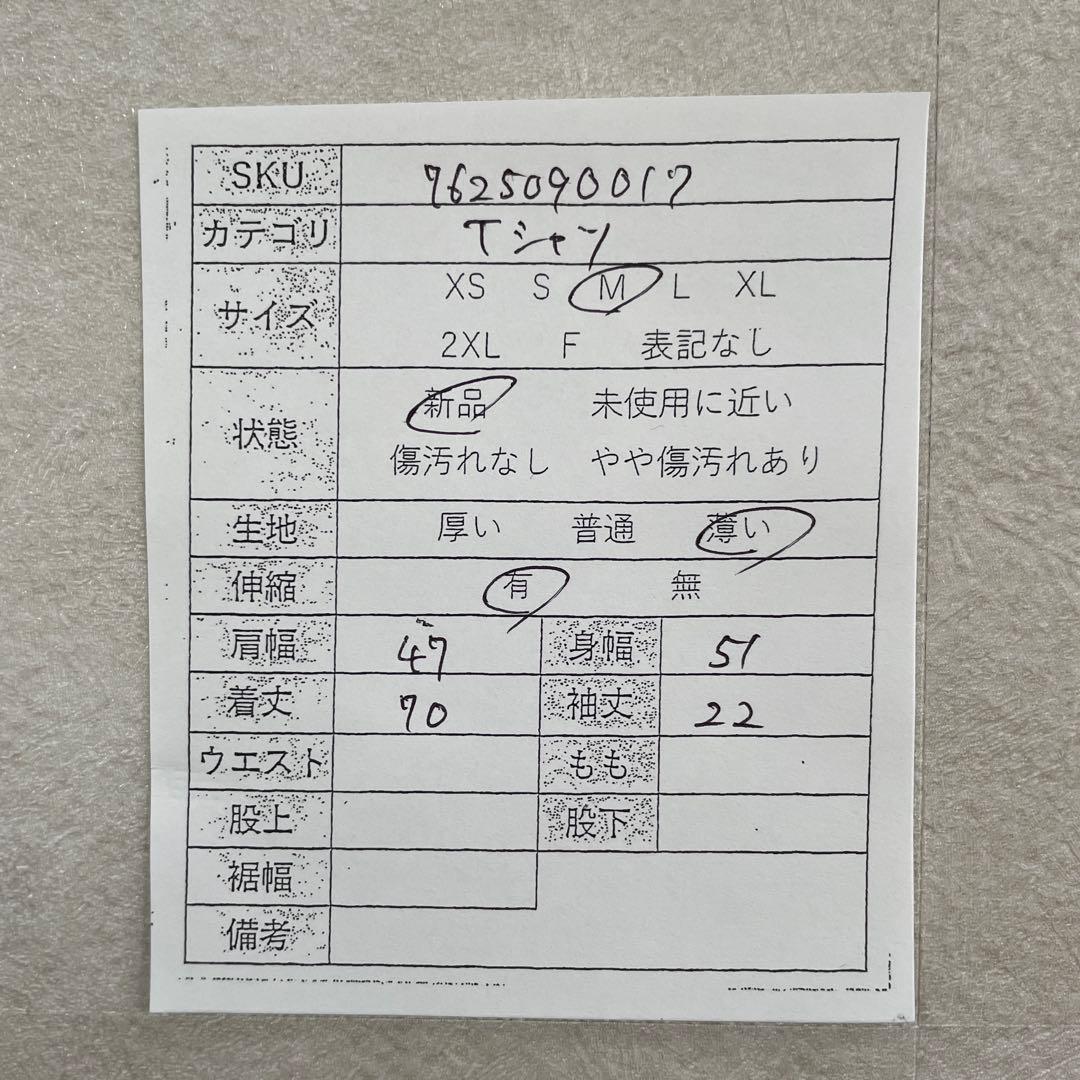 SKU 7625090017
カテゴリ Tシャツ
サイズ XS S M L XL
2XL F 表記なし
状態 新品 未使用に近い
傷汚れなし やや傷汚れあり
生地 厚い 普通 薄い
伸縮 有 無
肩幅 47 身幅 51
着丈 70 袖丈 22
ウエスト もも
股上 股下
裾幅
備考